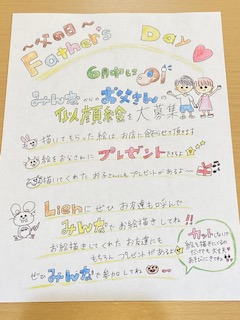 ～父の日～
Father's Day
6月中に
みんなからのお父さんの
似顔絵を大募集
描いてもらった絵は お店に飾らせて頂きます
絵をお父さんに プレゼントできるよ
描いてくれた お子さんにもプレゼントがあるよ～
Lienにぜひ お友達も呼んで
みんなでお絵描きしてね!!
お絵描きしてくれた お友達にも
もちろん プレゼントがあるよ
カットしないで
絵を描きにくるの
だけでも 大丈夫
あそびにきてね
ぜひ みんなで参加してね